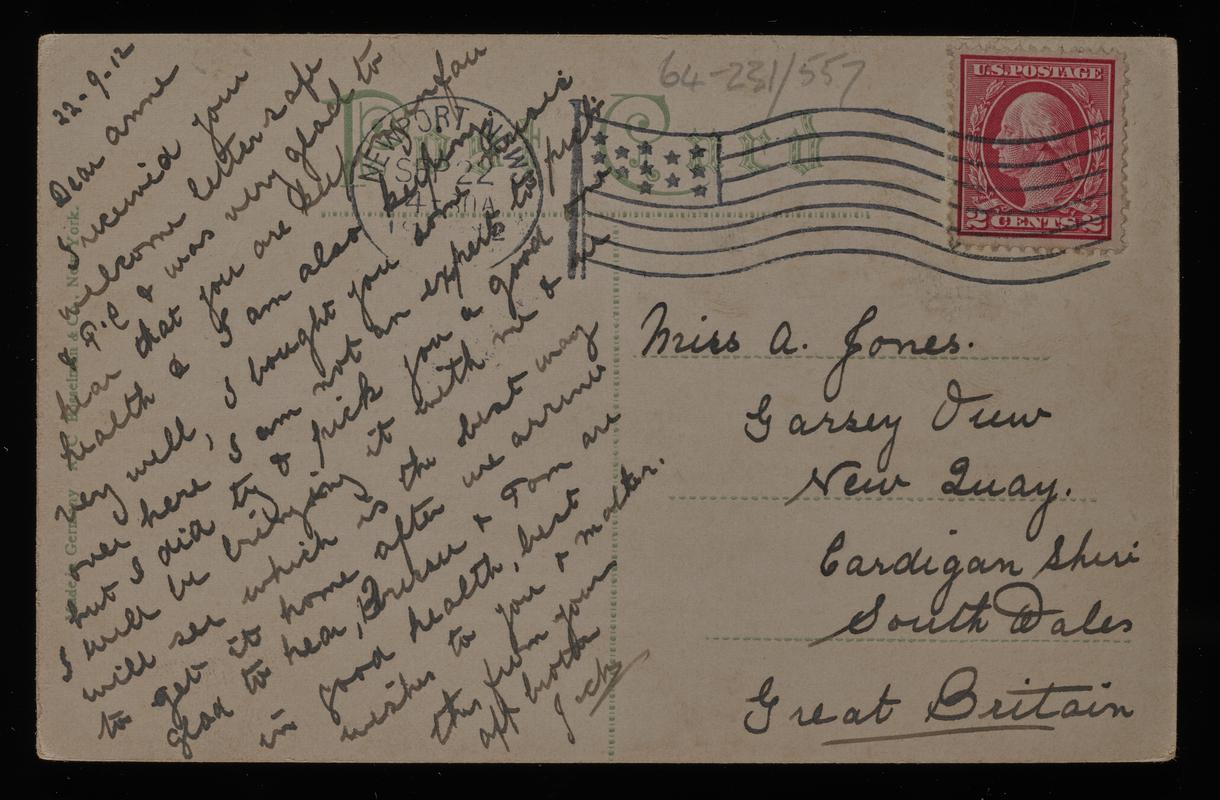 22-9-12
Dear annie
I received your
welcome letter safe
& P.C & was very glad to
hear that you are getting
health & I am also keeping
very well, I bought you some music
over here I am not an expert to pick
but I did try & pick you a good one
I will be bringing it with me & we
will see which is the best way
to get it home after we arrive
glad to hear, & Tom are
in good health, best
wishes to you & mother.
this from your
aff brother
Jack
64-231/557
Post Card
NEWPORT NEWS
SEP 22
U.S. POSTAGE
2 CENTS 2
Miss A. Jones.
Garsey View
New Quay.
Cardigan Shire
South Wales
Great Britain
Made in Germany New York.